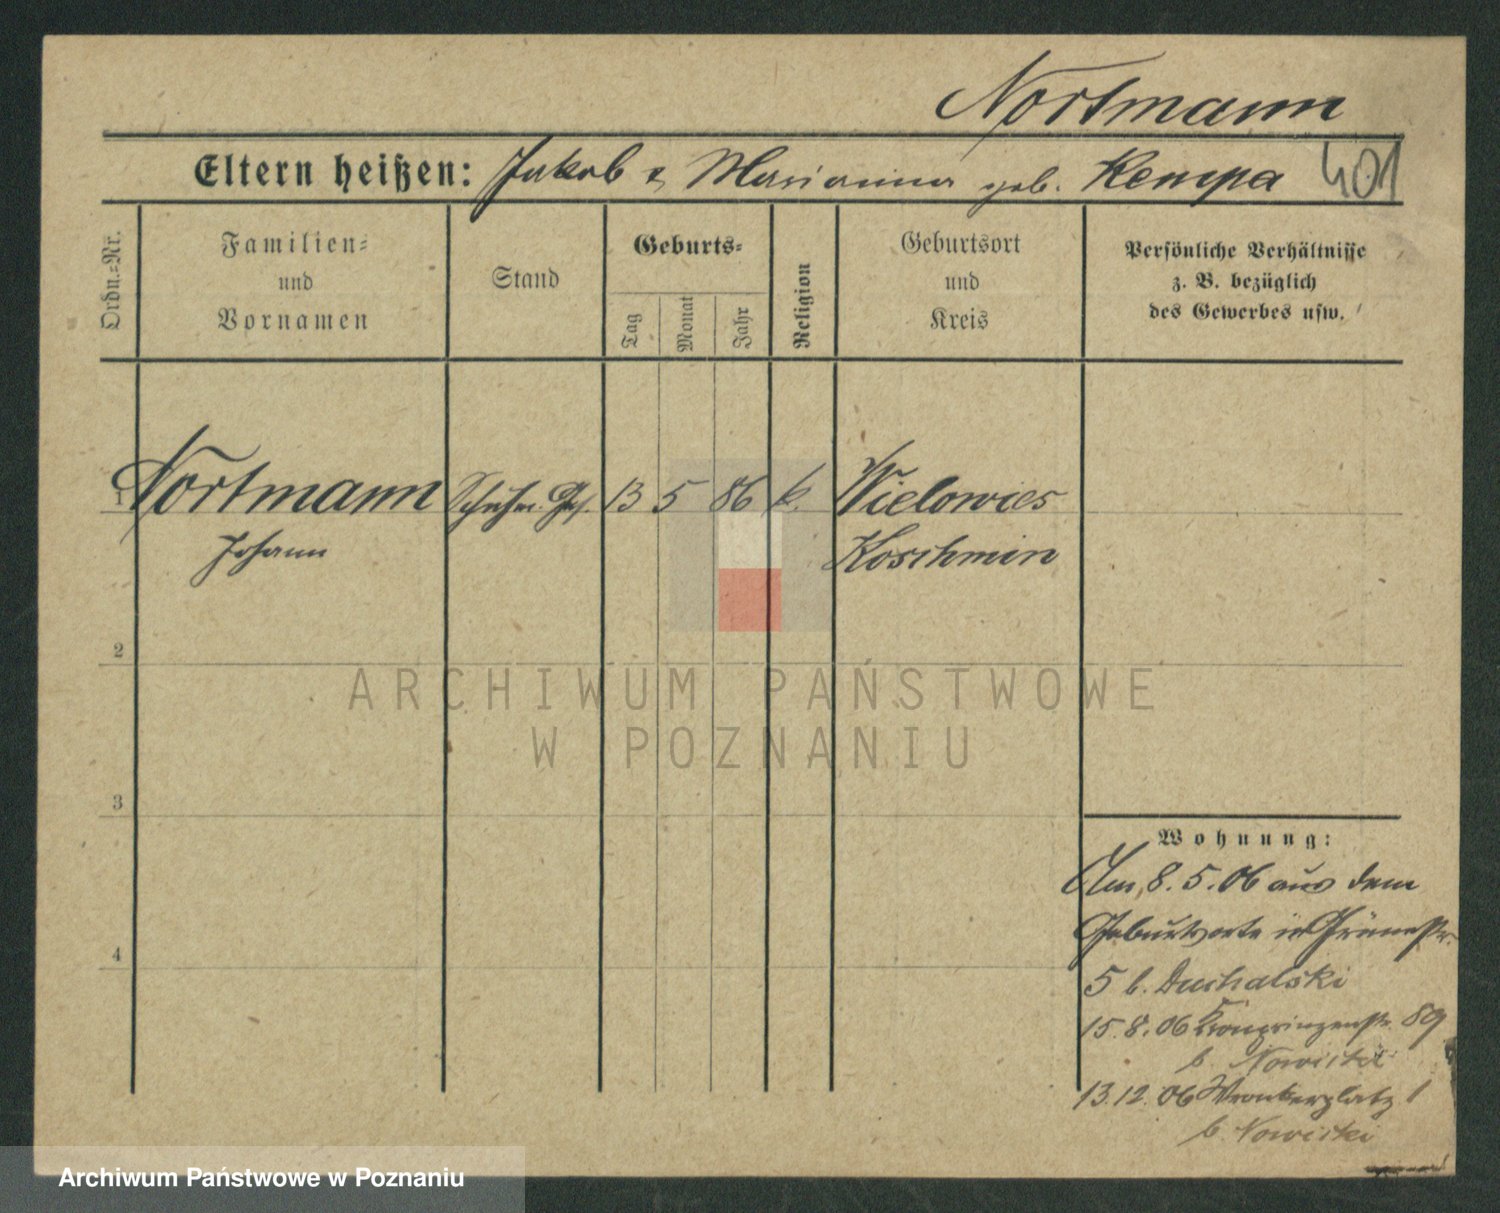 Nortmann
Eltern heißen: Jakob & Marianna geb. Kempa 401
Ordn.=Nr.
Familien=
und
Vornamen
Stand
Geburts=
Tag
Monat
Jahr
Religion
Geburtsort
und
Kreis
Persönliche Verhältnisse
z. B. bezüglich
des Gewerbes usw.
1 Nortmann Schuhm. Ges. 13 5 86 k. Wielowies
Johann Koschmin
2
3
4
Wohnung:
Am 8. 5. 06 aus dem
Geburtsorte in Grünestr.
5 b. Duchalski
15. 8. 06 Kronprinzenstr. 89
b. Nowicki
13. 12. 06 Wronkerplatz 1
b. Nowicki
ARCHIWUM PAŃSTWOWE
W POZNANIU
Archiwum Państwowe w Poznaniu